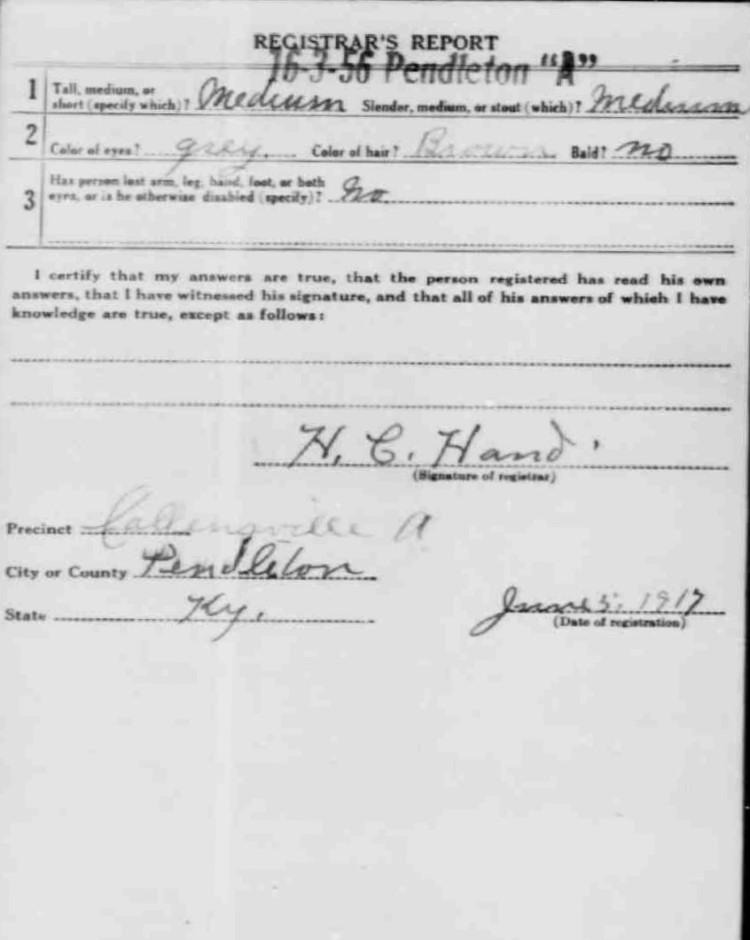 REGISTRAR'S REPORT
16-3-56 Pendleton "A"
1 Tall, medium, or
short (specify which)? Medium Slender, medium, or stout (which)? Medium
2 Color of eyes? grey. Color of hair? Brown Bald? no
Has person lost arm, leg, hand, foot, or both
3 eyes, or is he otherwise disabled (specify)? No
I certify that my answers are true, that the person registered has read his own
answers, that I have witnessed his signature, and that all of his answers of which I have
knowledge are true, except as follows:
H. C. Hand
(Signature of registrar)
Precinct Callensville A
City or County Pendleton
State Ky. June 5, 1917
(Date of registration)